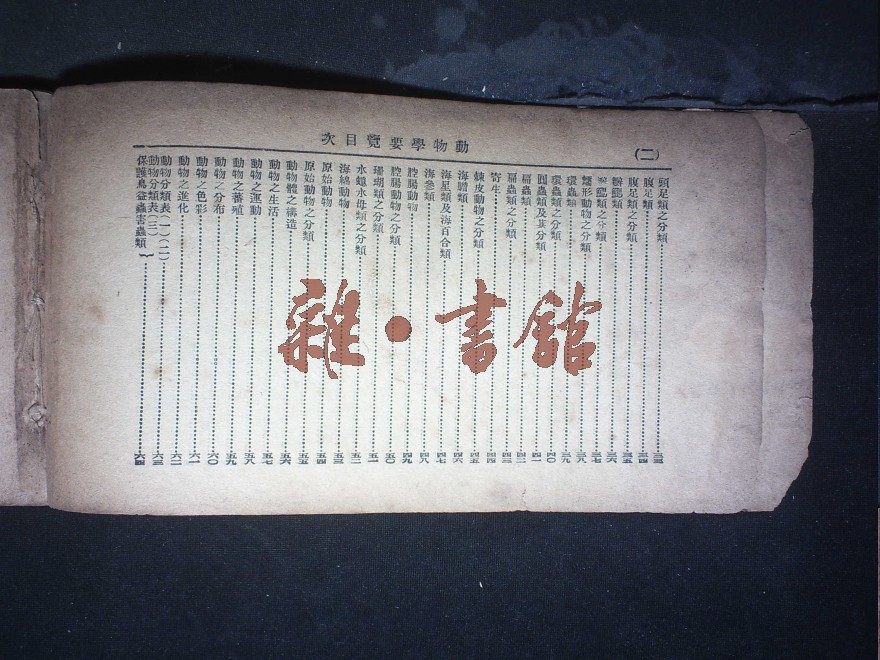 動物學要覽目次
(二)
頭足類之分類……三三
腹足類……三四
腹足類之分類……三五
瓣鰓類……三六
瓣鰓類之分類……三七
蠕形動物之分類……三八
環蟲類……三九
環蟲類之分類……四〇
圓蟲類及其分類……四一
扁蟲類……四二
扁蟲類之分類……四三
寄生……四四
棘皮動物之分類……四五
海膽類……四六
海星類及海百合類……四七
海參類……四八
腔腸動物……四九
腔腸動物之分類……五〇
珊瑚類之分類……五一
水螅水母類之分類……五二
海綿動物……五三
原始動物……五四
原始動物之分類……五五
動物體之構造……五六
動物之生活……五七
動物之運動……五八
動物之蕃殖……五九
動物之分布……六〇
動物之色彩……六一
動物之進化……六二
動物分類表(一)(二)……六三
動物分類表(三)
保護鳥益蟲害蟲類……六四
雜·書館